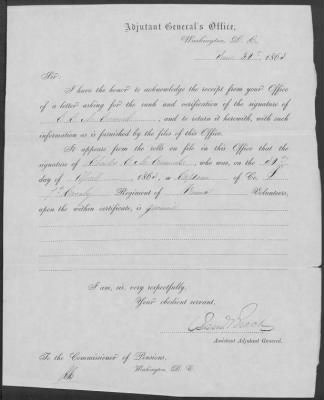 Adjutant General's Office,
Washington, D. C.
June 1863
Sir:
I have the honor to acknowledge the receipt from your Office
of a letter asking for the rank and verification of the signature of
C. C. and to return it herewith, with such
information as is furnished by the files of this Office.
It appears from the rolls on file in this Office that the
signature of Charles C. who was, on the
day of April 1863, a Captain of Co.
7th Cavalry Regiment of Volunteers,
upon the within certificate, is genuine
I am, sir, very respectfully,
Your obedient servant,
Assistant Adjutant General.
To the Commissioner of Pensions,
Washington, D. C.